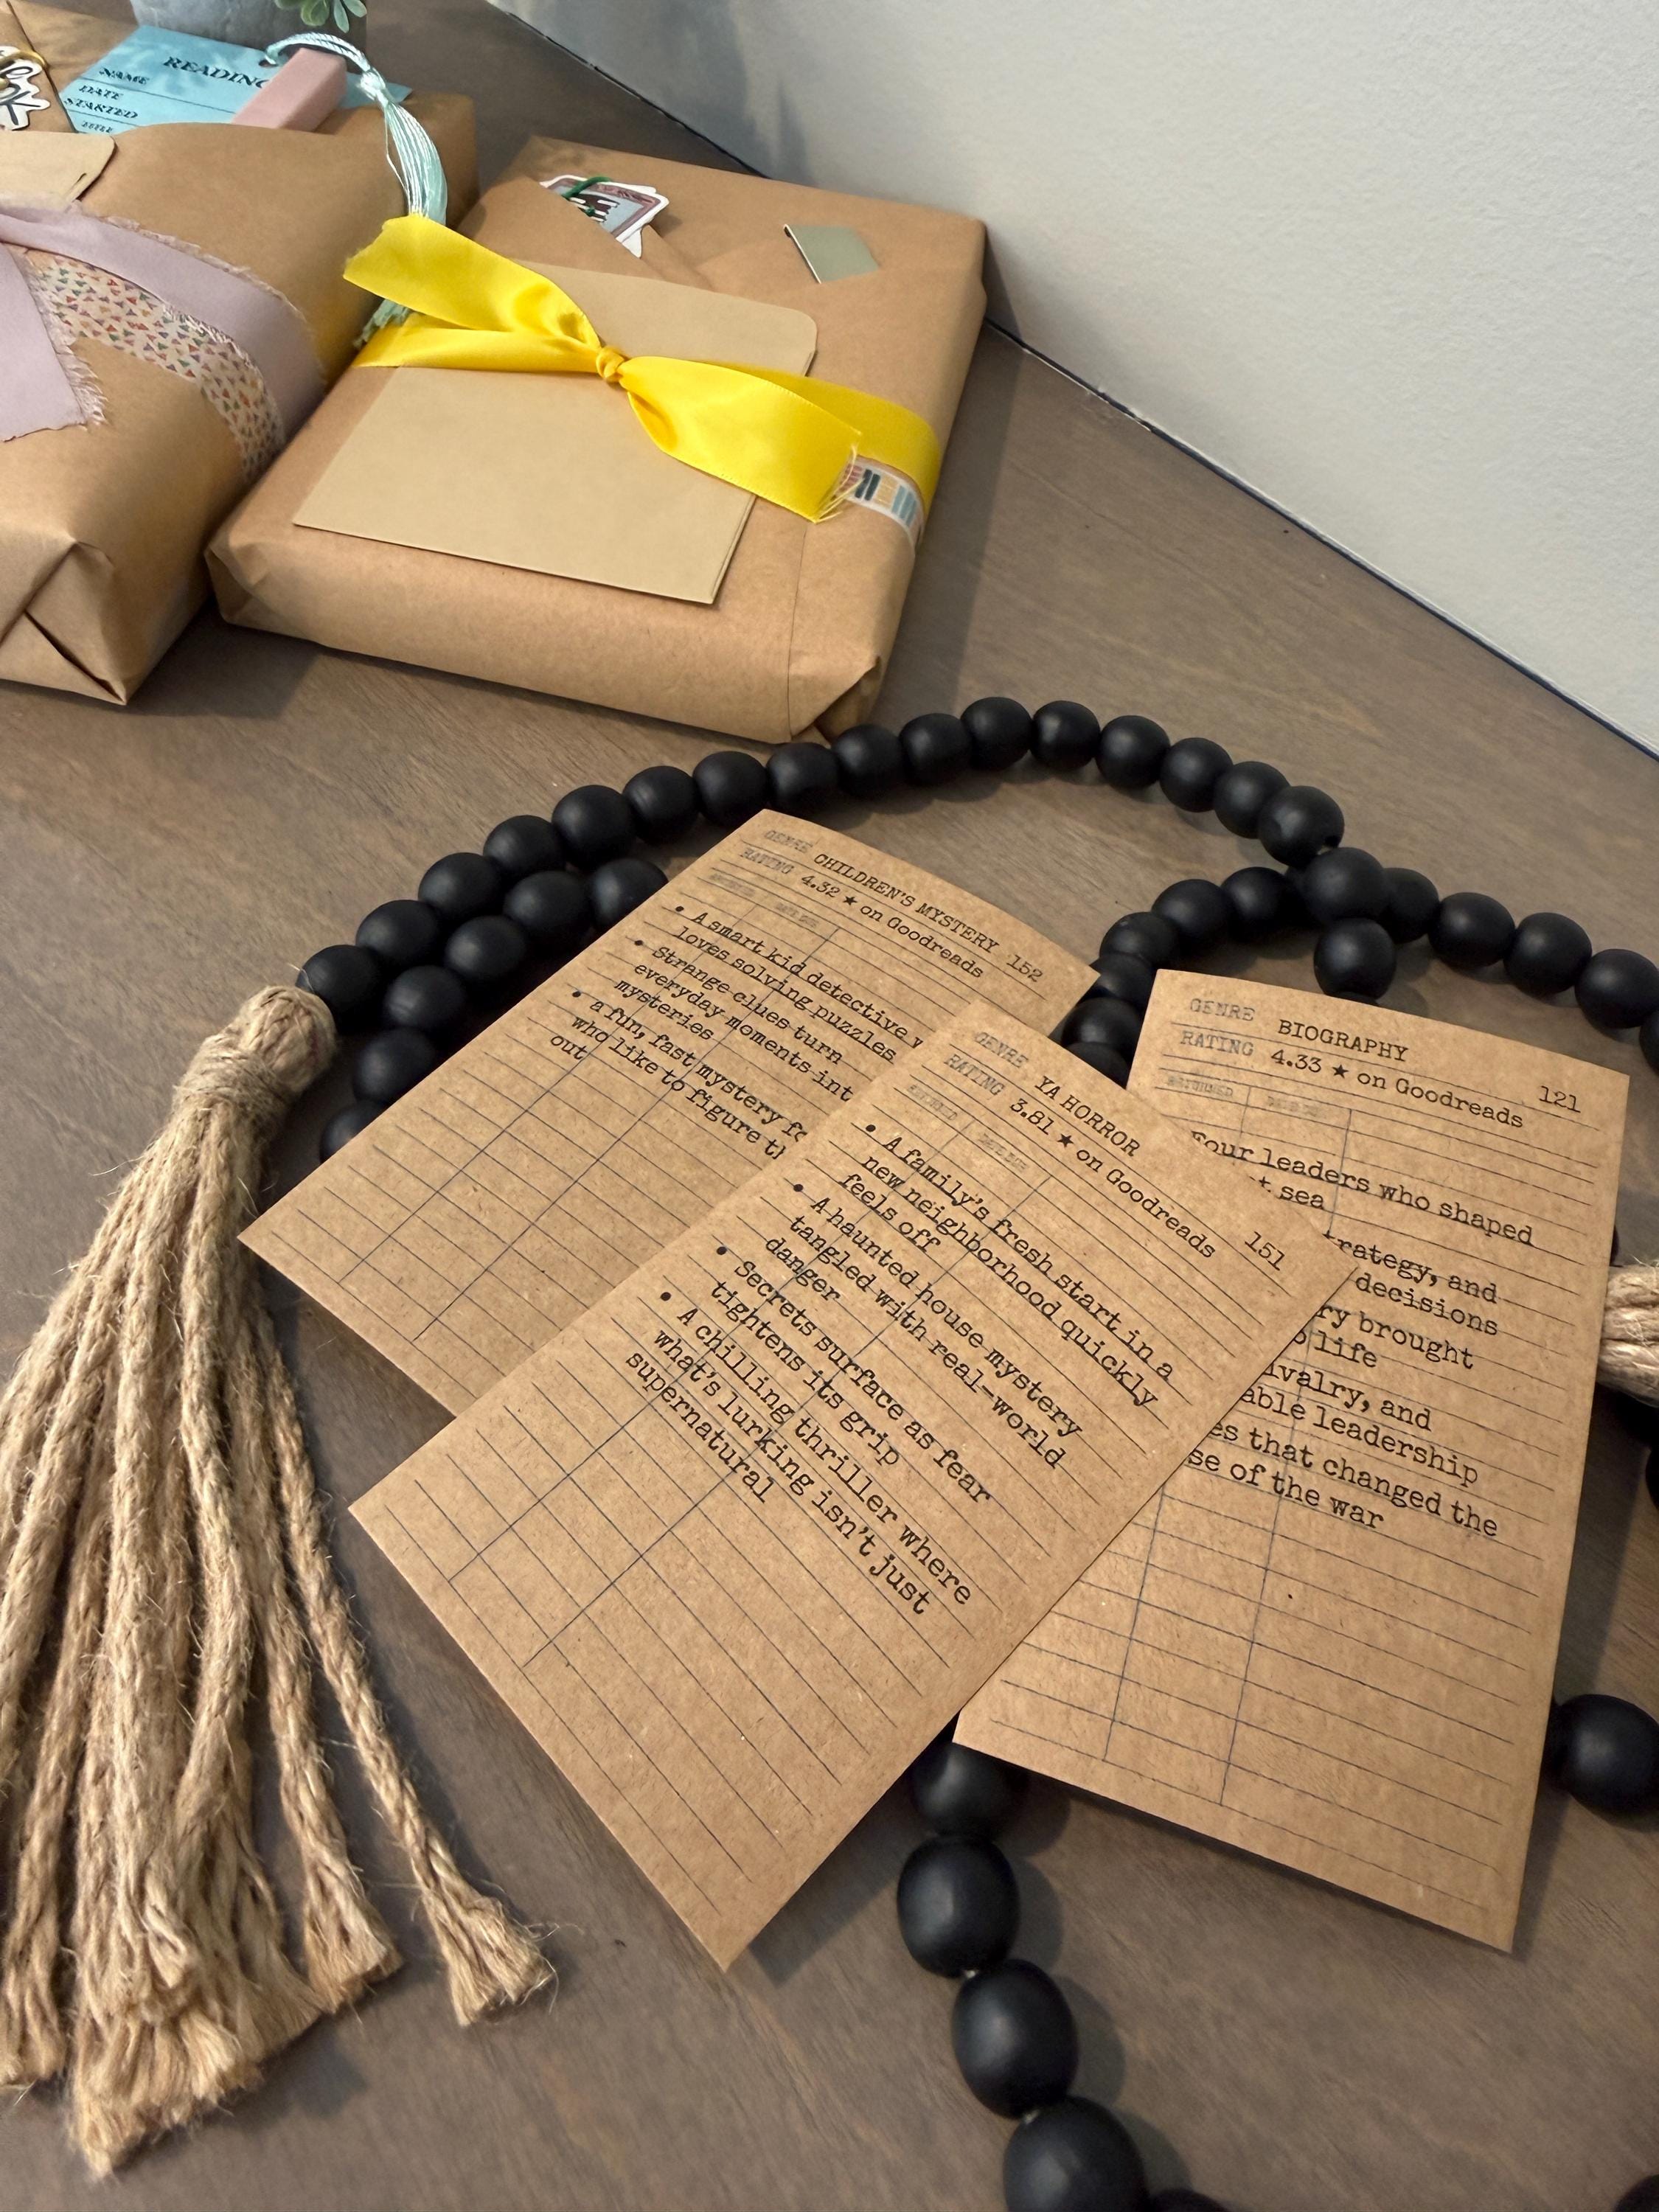 READING
NAME
DATE
STARTED
TITLE
GENRE CHILDREN'S MYSTERY 152
RATING 4.32 ★ on Goodreads
• A smart kid detective
loves solving puzzles
• Strange clues turn
everyday moments int
mysteries
• a fun, fast mystery fo
who like to figure th
out
GENRE YA HORROR
RATING 3.81 ★ on Goodreads 151
• A family's fresh start in a
new neighborhood quickly
feels off
• A haunted house mystery
tangled with real-world
danger
• Secrets surface as fear
tightens its grip
• A chilling thriller where
what's lurking isn't just
supernatural
GENRE BIOGRAPHY
RATING 4.33 ★ on Goodreads 121
RETURNED
Four leaders who shaped
t sea
trategy, and
decisions
ry brought
o life
ivalry, and
able leadership
es that changed the
se of the war